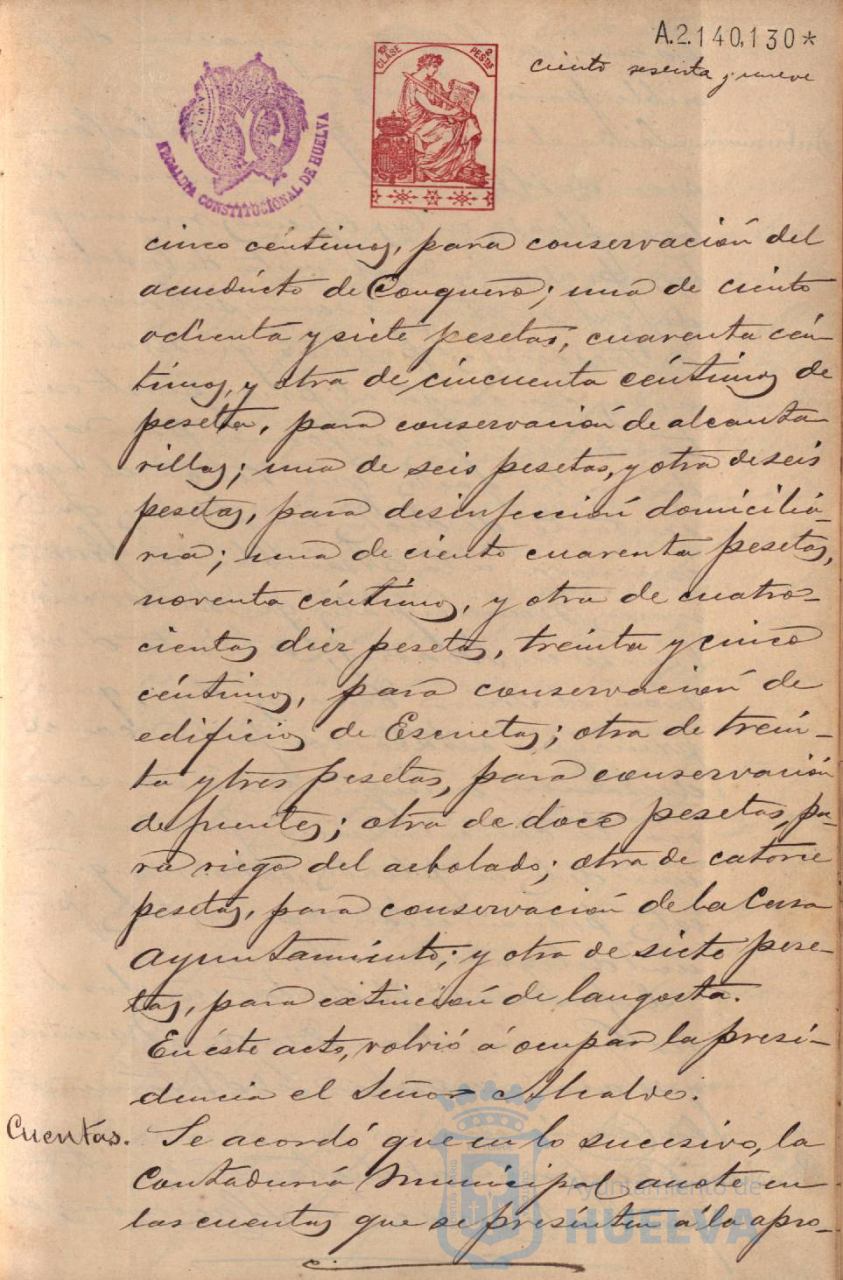 A.2.140,130*
ciento sesenta y nueve
10ª CLASE
2 PESTAS
ALCALDIA CONSTITUCIONAL DE HUELVA
cinco céntimos, para conservación del
acueducto de Conquero; una de ciento
ochenta y siete pesetas, cuarenta cén-
timos, y otra de cincuenta céntimos de
peseta, para conservación de alcanta-
rillas; una de seis pesetas, y otra de seis
pesetas, para desinfección domicilia-
ria; una de ciento cuarenta pesetas,
noventa céntimos, y otra de cuatro-
cientas diez pesetas, treinta y cinco
céntimos, para conservación de
edificios de Escuelas; otra de trein-
ta y tres pesetas, para conservación
de fuentes; otra de doce pesetas, pa-
ra riego del arbolado; otra de catorce
pesetas, para conservación de la Casa
Ayuntamiento; y otra de siete pese-
tas, para extinción de langosta.
En éste acto, volvió á ocupar la presi-
dencia el Señor Alcalde.
Cuentas. Se acordó que en lo sucesivo, la
Contaduría Municipal anote en
las cuentas que se presenten á la apro-
Ayuntamiento de
HUELVA